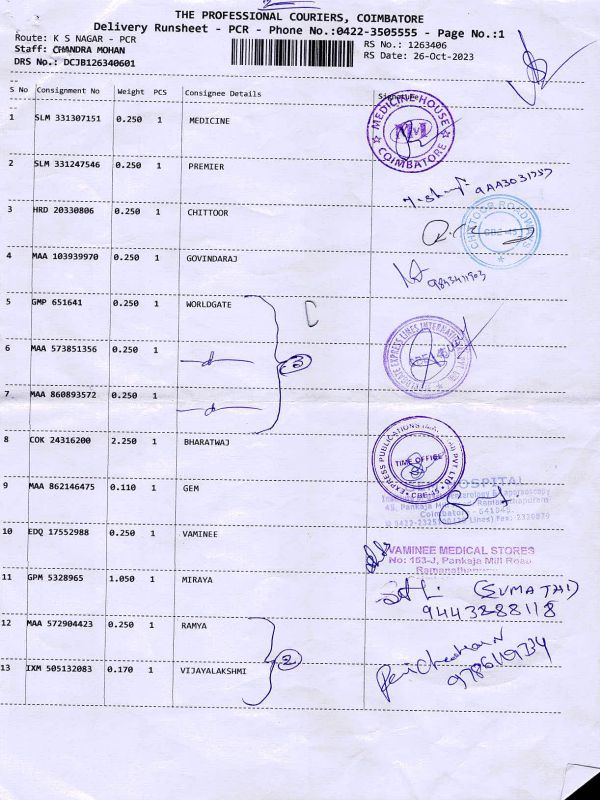 2
THE PROFESSIONAL COURIERS, COIMBATORE
Delivery Runsheet - PCR - Phone No.:0422-3505555 - Page No.:1
Route: K S NAGAR - PCR
RS No.: 1263406
Staff: CHANDRA MOHAN
RS Date: 26-Oct-2023
DRS No.: DCJB126340601
S No Consignment No Weight PCS Consignee Details Signature
1 SLM 331307151 0.250 1 MEDICINE
MEDICINE HOUSE
COIMBATORE
2 SLM 331247546 0.250 1 PREMIER
3 HRD 20330806 0.250 1 CHITTOOR
CHITTOOR ROADWAYS
CBE-45
4 MAA 103939970 0.250 1 GOVINDARAJ
9843411903
5 GMP 651641 0.250 1 WORLDGATE
EXPRESS LINES INTERNATIONAL
6 MAA 573851356 0.250 1
3
7 MAA 860893572 0.250 1
8 COK 24316200 2.250 1 BHARATWAJ
EXPRESS PUBLICATIONS PVT LTD
TIME OFFICE
CBE-45
9 MAA 862146475 0.110 1 GEM
HOSPITAL
45, Pankaja Mill
Coimbatore
10 EDQ 17552988 0.250 1 VAMINEE
VAMINEE MEDICAL STORES
No: 153-J, Pankaja Mill Road
11 GPM 5328965 1.050 1 MIRAYA
(SUMATHI)
9443288118
12 MAA 572904423 0.250 1 RAMYA
2
13 IXM 505132083 0.170 1 VIJAYALAKSHMI